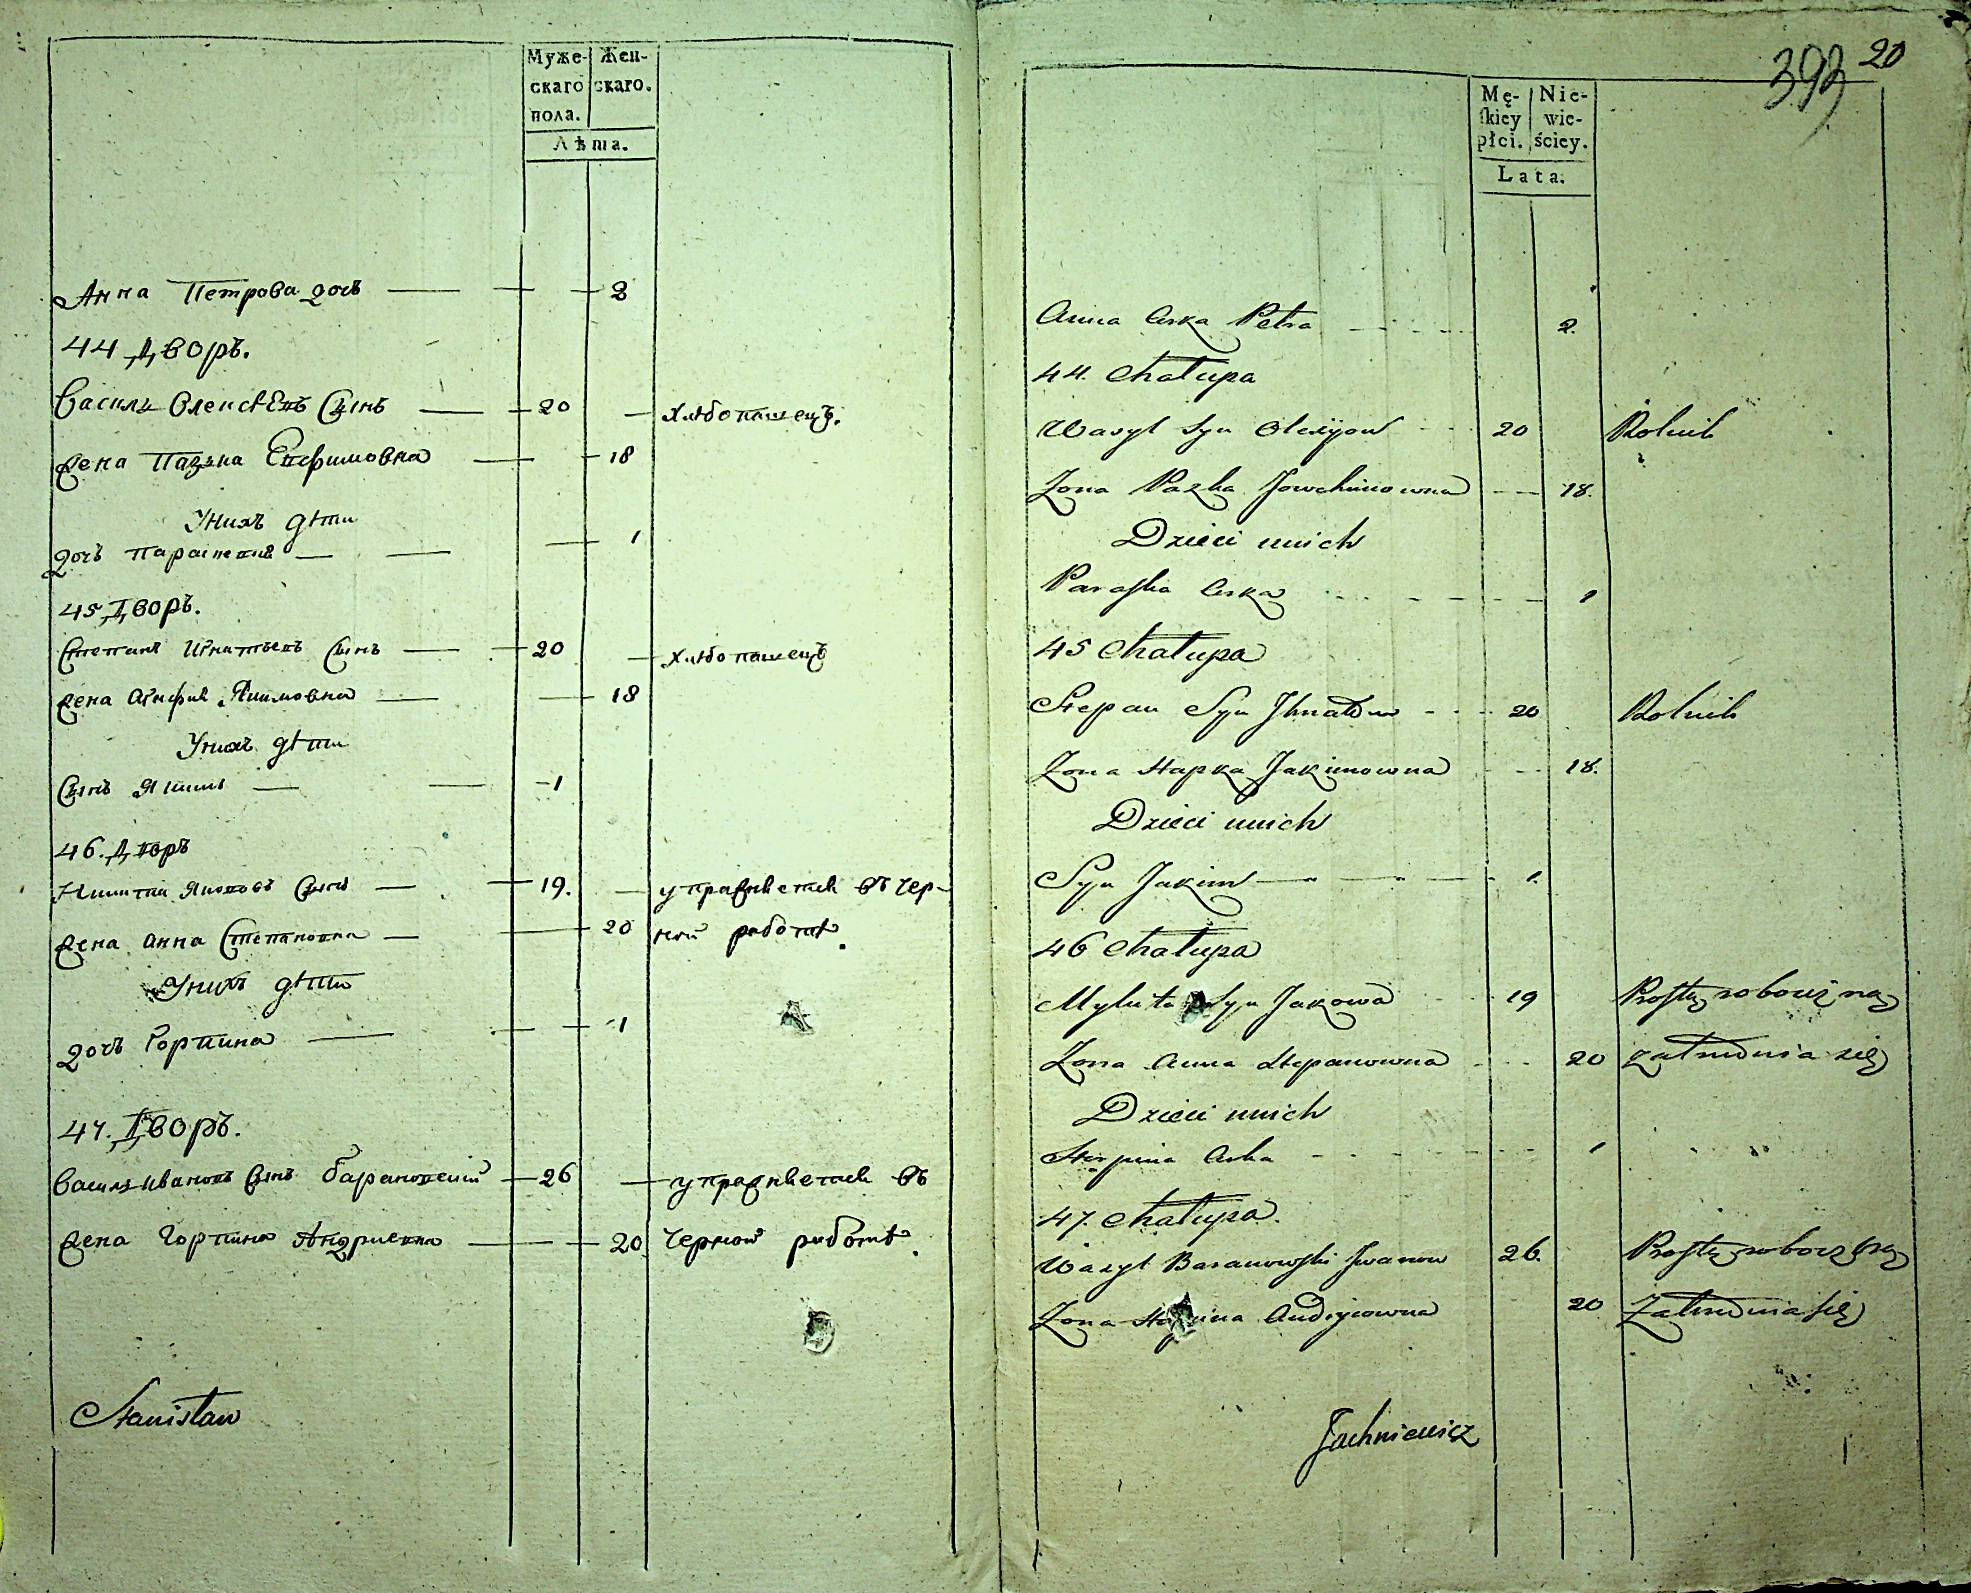 Муже-
скаго
пола.
Жен-
скаго.
Лѣта.
Анна Петрова дочь 2
44 Дворъ.
Василь Олексѣевъ Сынъ 20 хлѣбопашецъ.
Жена Пазька Евфимовна 18
У нихъ дѣти
дочь Параскевия 1
45 Дворъ.
Степанъ Игнатьевъ Сынъ 20 хлѣбопашецъ
Жена Агафия Якимовна 18
У нихъ дѣти
Сынъ Якимъ 1
46. Дворъ
Никита Якововъ Сынъ 19. упражняется въ чер-
Жена Анна Степановна 20 ной работѣ.
У нихъ дѣти
дочь Горпина 1
47. Дворъ.
Василь Ивановъ Сынъ Барановский 26 упражняется въ
Жена Горпина Андриевна 20. черной работѣ.
Stanisław
393 20
Mę-
skiey
płci.
Nie-
wie-
ściey.
Lata.
Anna Curka Petra 2.
44. Chałupa
Wasyl Syn Olexijow 20 Rolnik
Żona Pazka Jowchimowna 18.
Dzieci u nich
Paraska Curka 1
45 Chałupa
Stepan Syn Ihnatow 20 Rolnik
Żona Hapka Jakimowna 18.
Dzieci u nich
Syn Jakim 1.
46 Chałupa
Mykita Syn Jakowa 19 Prostą roboczizną
Żona Anna Stepanowna 20 zatrudnia się
Dzieci u nich
Horpina Curka 1
47. Chałupa.
Wasyl Baranowski Iwanow 26. Prostą robocizną
Żona Horpina Andryiowna 20 Zatrudnia się
Jachniewicz